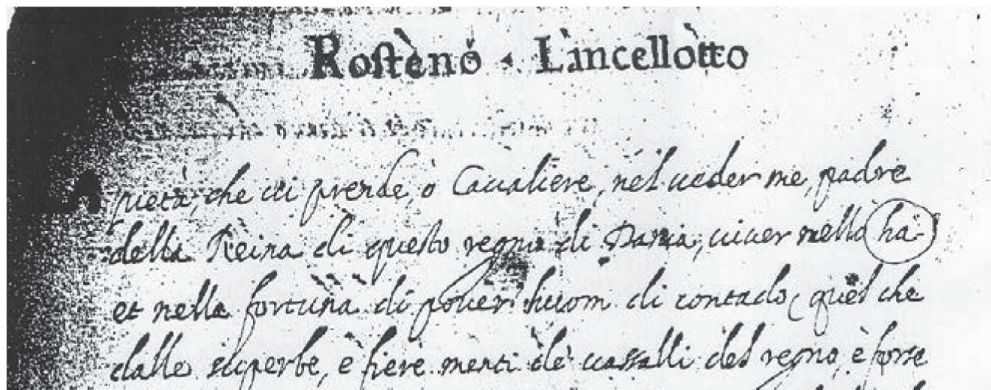 Rostèno · Lincellòtto
pietà, che vi prende, ò Cavaliere, nel veder me, padre
della Reina di questo regno di Dania, viver nello ha-
et nella fortuna di pover huom di contado, quel che
dalle superbe, e fiere menti de' vassalli del regno, è forse